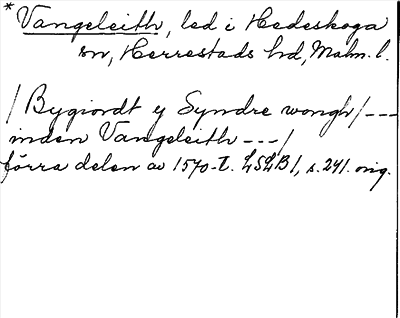 * Vangeleith, led i Hedeskoga
sn, Herrestads hd, Malm. l.
/ Bygiordt y Syndre wongh / ---
inden Vangeleith --- /
förra delen av 1570-t. LSLB 1, s. 241. orig.